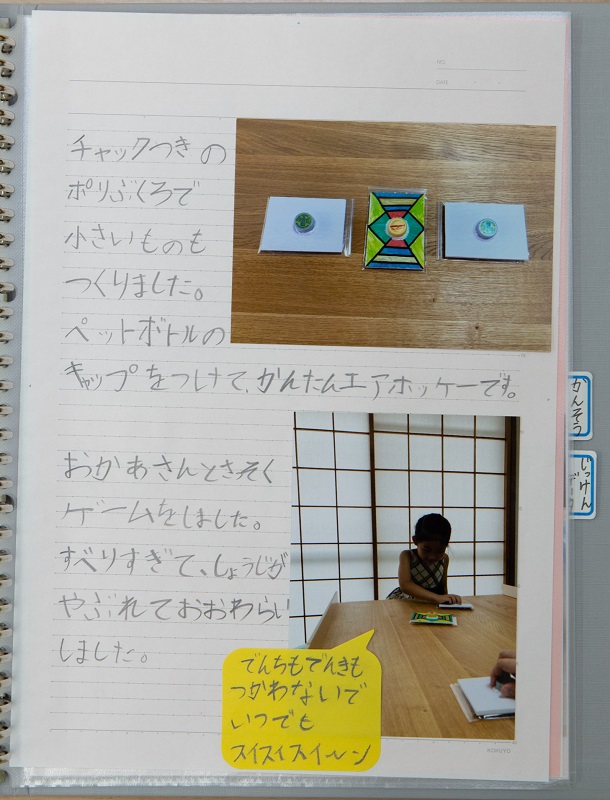 NO.
DATE
チャックつきの
ポリぶくろで
小さいものも
つくりました。
ペットボトルの
キャップをつけて、かんたんエアホッケーです。
おかあさんとさっそく
ゲームをしました。
すべりすぎて、しょうじが
やぶれておおわらい
しました。
でんちもでんきも
つかわないで
いつでも
スイスイスイーン
KOKUYO
かんそう
じっけん
データ